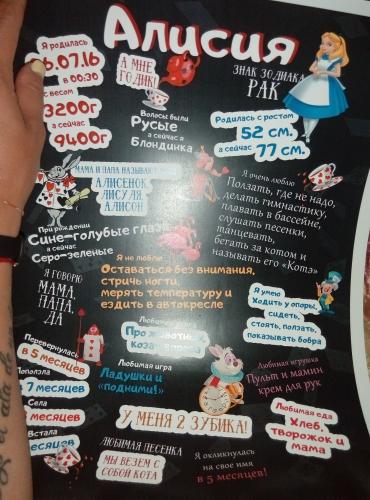 Алисия
Я родилась
6.07.16
в 00:30
с весом
3200г
а сейчас
9400г
А МНЕ
ГОДИК!
Волосы были
Русые
а сейчас я
Блондинка
ЗНАК ЗОДИАКА
РАК
Родилась с ростом
52 см.
а сейчас 77 см.
МАМА И ПАПА НАЗЫВАЮТ
АЛИСЕНОК
ЛИСУЛЯ
АЛИСОН
При рождении
Сине-голубые глаза
а сейчас
Серо-зеленые
Я очень люблю
Ползать, где не надо,
делать гимнастику,
плавать в бассейне,
слушать песенки,
танцевать,
бегать за котом и
называть его «Котэ»
Я не люблю
Оставаться без внимания,
стричь ногти,
мерять температуру и
ездить в автокресле
Я ГОВОРЮ
МАМА,
ПАПА,
ДА
Я умею
Ходить у опоры,
сидеть,
стоять, ползать,
показывать бобра
Перевернулась
в 5 месяцев
Поползла
7 месяцев
Села
месяцев
Встала
месяцев
Любимая игра
Ладушки и
«подними!»
Любимая игрушка
Пульт и мамин
крем для рук
У МЕНЯ 2 ЗУБИКА!
Любимая еда
Хлеб,
творожок и
мама
ЛЮБИМАЯ ПЕСЕНКА
МЫ ВЕЗЕМ С
СОБОЙ КОТА
Я откликнулась
на свое имя
в 5 месяцев!